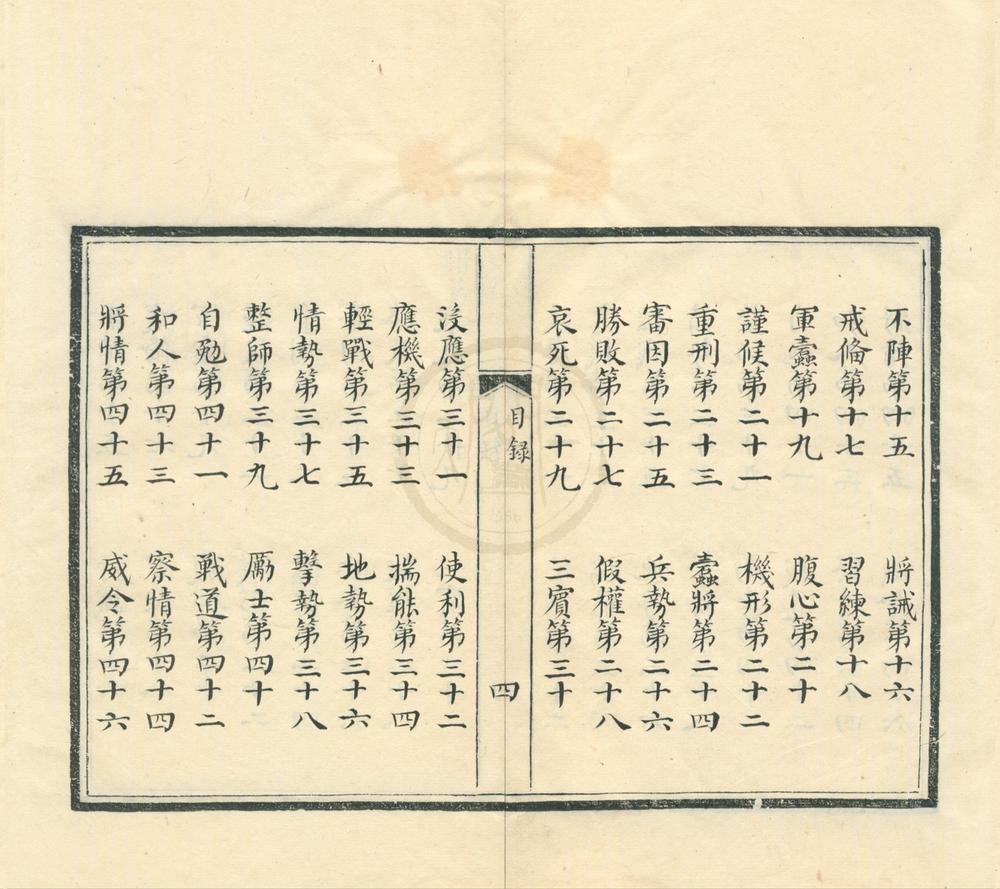 不陣第十五　將誡第十六
戒俻第十七　習練第十八
軍蠹第十九　腹心第二十
謹候第二十一　機形第二十二
重刑第二十三　蠹將第二十四
審因第二十五　兵勢第二十六
勝敗第二十七　假權第二十八
哀死第二十九　三賓第三十
目録　四
没應第三十一　使利第三十二
應機第三十三　揣能第三十四
輕戰第三十五　地勢第三十六
情勢第三十七　擊勢第三十八
整師第三十九　厲士第四十
自勉第四十一　戰道第四十二
和人第四十三　察情第四十四
將情第四十五　威令第四十六